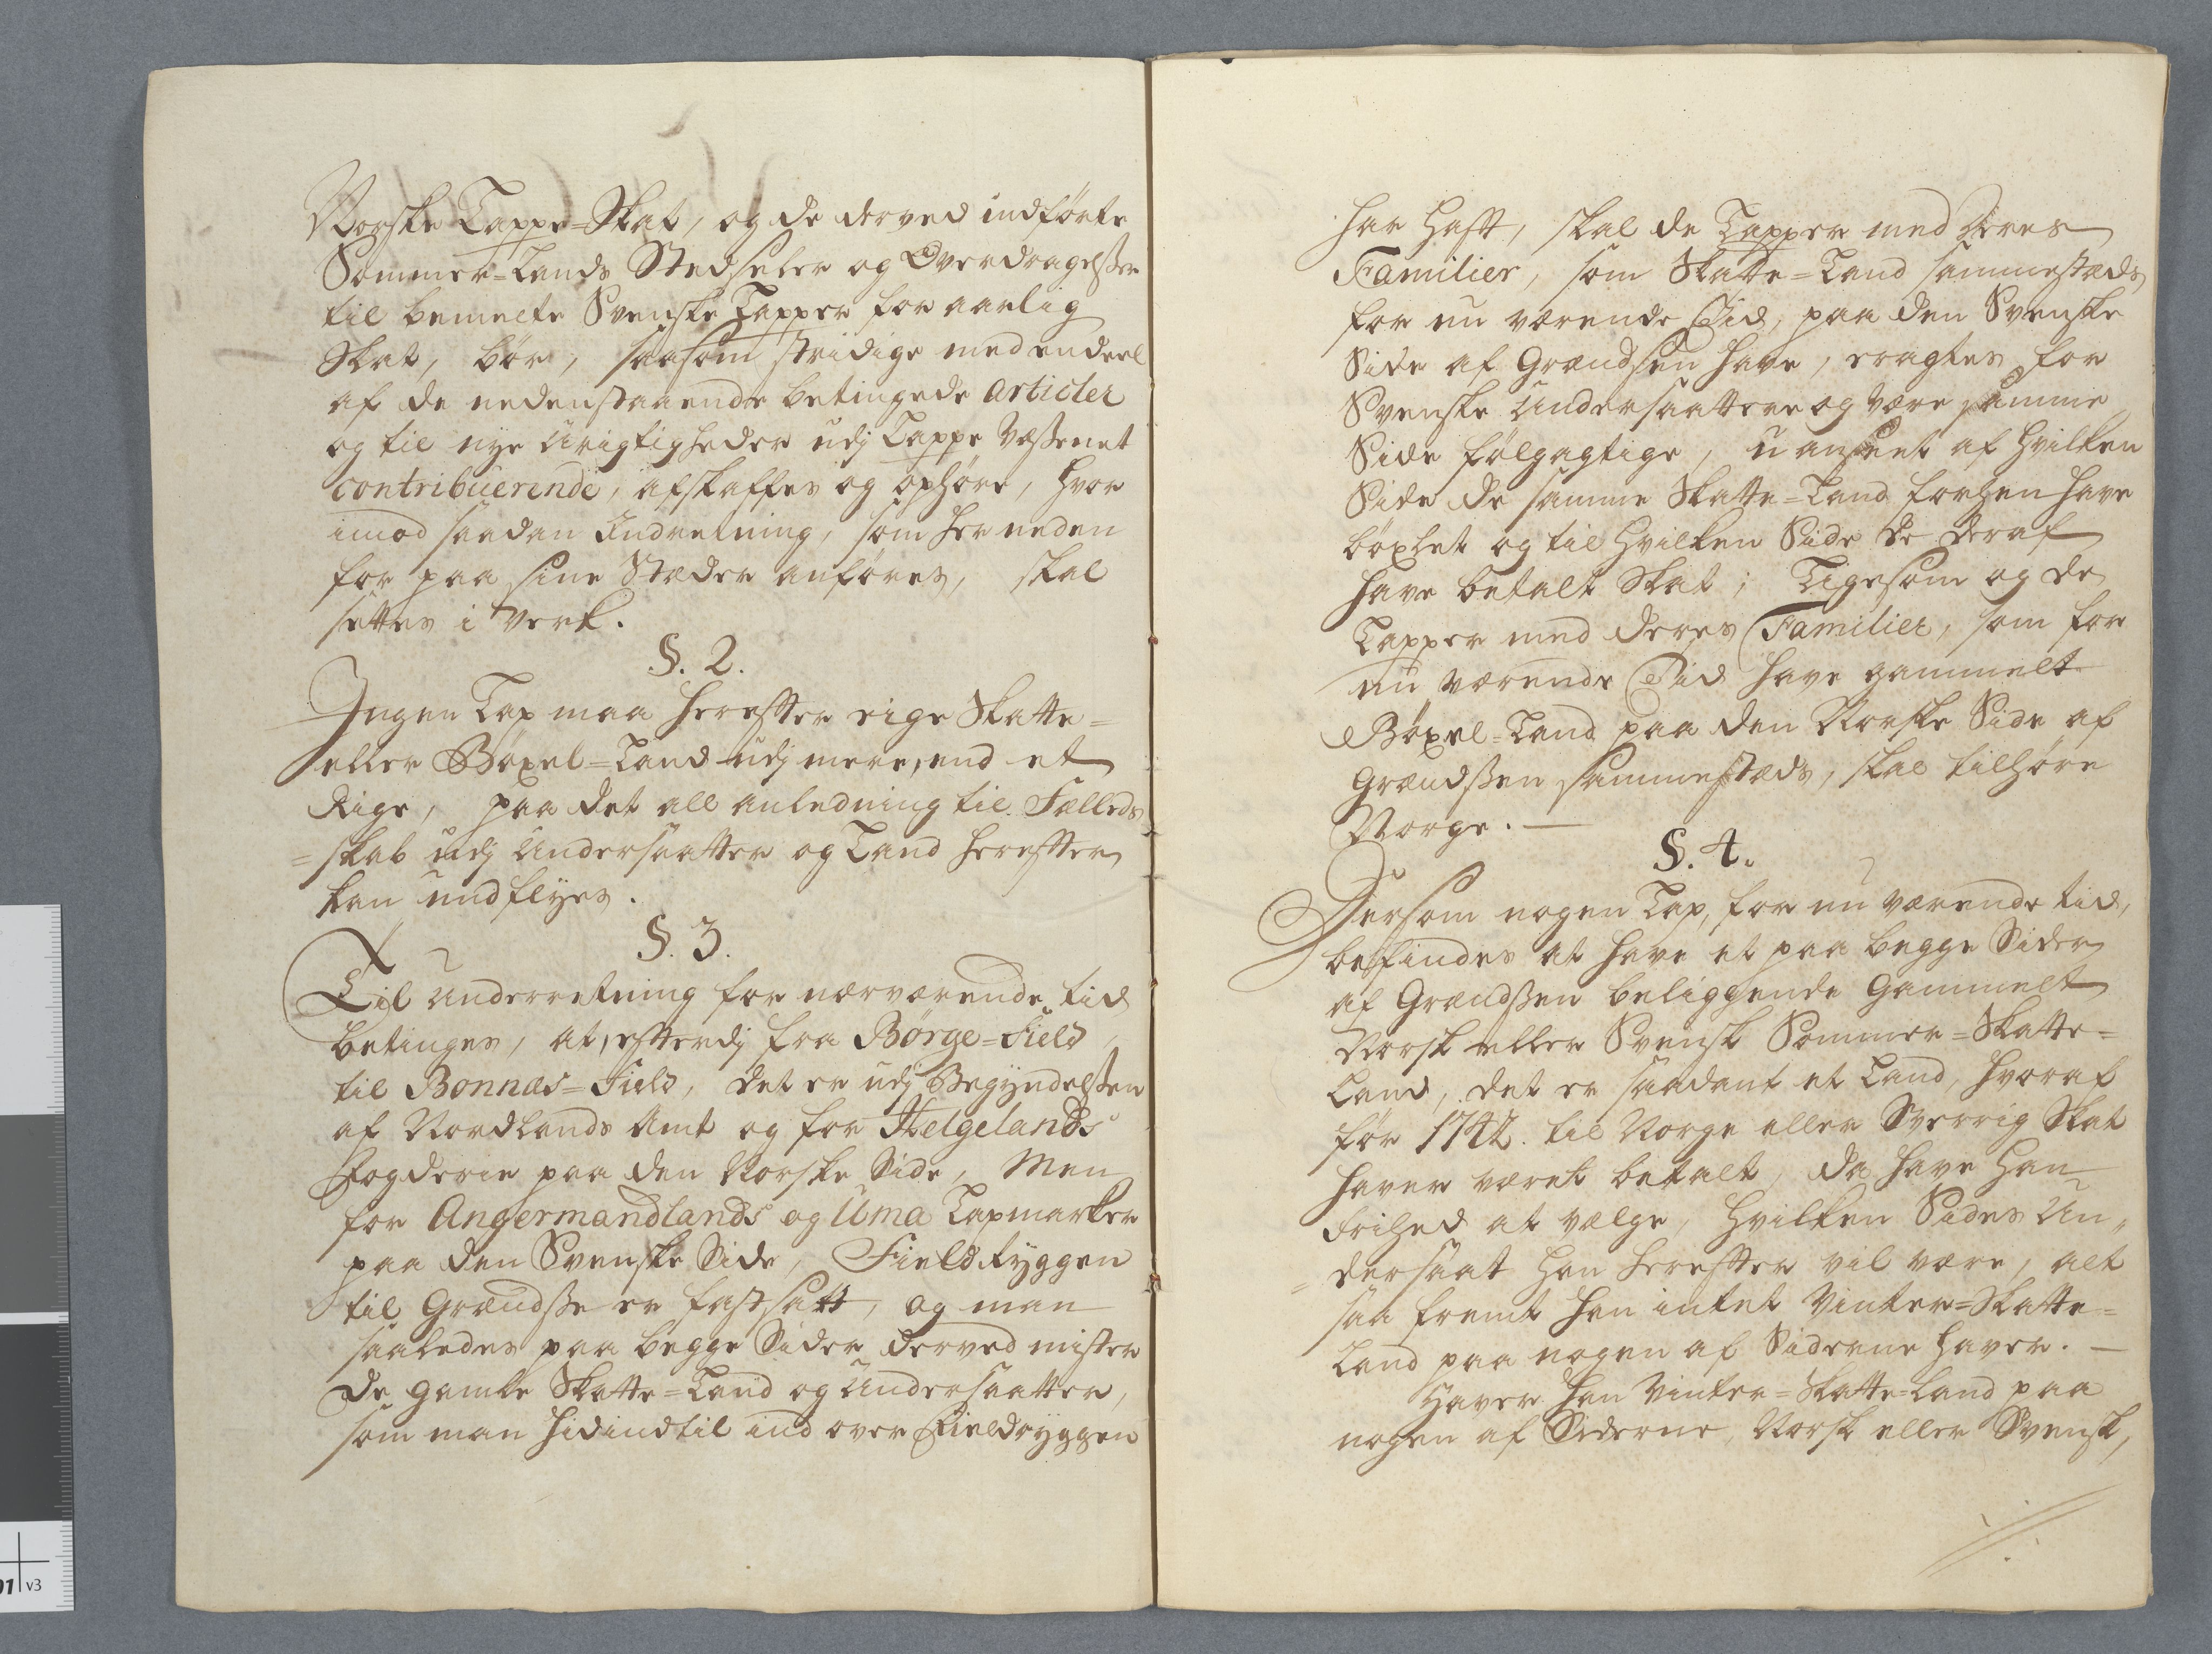 Norske Lappe=Skat, og de derved indførte
Sommer=Lands Stedseler og Overdragelsser
til bemelte Svenske Lapper for aarlig
Skat, bør, saasom stridige med endeel
af de nedenstaaende betingede Articler
og til nye Urigtigheder udj Lappe Væssenet
contribuerende, afskaffes og ophøre, hvor
imod saadan Indretning, som her neden
for paa sine Stæder anføres, skal
settes i Verk.
§. 2.
Ingen Lap maa herefter eige Skatte=
eller Bøxel=Land udj mere, end et
Rige, paa det all anledning til Fælleds
=skab udj Undersaatter og Land herefter
kan undflyes.
§. 3.
Til Underretning for nærværende tid
betinges, at, efterdj fra Børge=Field
til Bonnæs=Field, det er udj Begyndelssen
af Nordlands Amt og for Helgelands
Fogderie paa den Norske Side, Men
for Angermandlands og Uma Lapmarker
paa den Svenske Side, Fieldryggen
til Grændsse er fastsatt, og man
saaledes paa begge Sider derved mister
de gamle Skatte=Land og Undersaatter,
som man hidindtil ind over Fieldryggen
har hafft, skal de Lapper med deres
Familier, som Skatte=Land sammestæds
for nu værende Tid, paa den Svenske
Side af Grændsen have, eragtes for
Svenske Undersaattere og være samme
Side følgagtige, u anseet af hvilken
Side de samme Skatte=Land forhen have
bøxlet og til hvilken Side de deraf
have betalt Skat; Ligesom og de
Lapper med deres Familier, som for
nu værende Tid have gammelt
Bøxel=Land paa den Norske Side af
Grændssen sammestæds, skal tilhøre
Norge. —
§. 4.
Dersom nogen Lap, for nu værende tid,
befindes at have et paa begge Sider
af Grændssen beliggende Gammelt
Norsk eller Svensk Sommer=Skatte=
Land, det er saadant et Land, hvoraf
før 1742. til Norge eller Sverrig Skat
haver været betalt, da have han
Frihed at vælge, hvilken Sides Un„
=dersaat han herefter vil være, alt
saa fremt han intet Vinter=Skatte=
Land paa nogen af Siderne haver. —
Haver han Vinter=Skatte=Land paa
nogen af Siderne, Norsk eller Svensk,